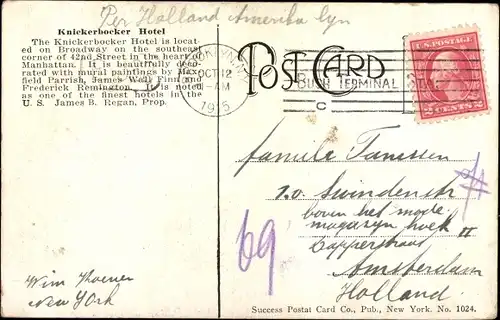 Per Holland Amerika lyn
Knickerbocker Hotel
The Knickerbocker Hotel is locat-
ed on Broadway on the southeast
corner of 42nd Street in the heart of
Manhattan. It is beautifully deco-
rated with mural paintings by Max-
field Parrish, James Wall Finn and
Frederick Remington. It is noted
as one of the finest hotels in the
U. S. James B. Regan, Prop.
OCT 12
AM
1915
POST CARD
BUSH TERMINAL STA.
C
U.S. POSTAGE
2 CENTS 2
familie Janssen
z.o. Swindenstr
boven het mode
magasyn hoek
Dapperstraat
Amsterdam
Holland.
69
Wim
New York
Success Postal Card Co., Pub., New York. No. 1024.